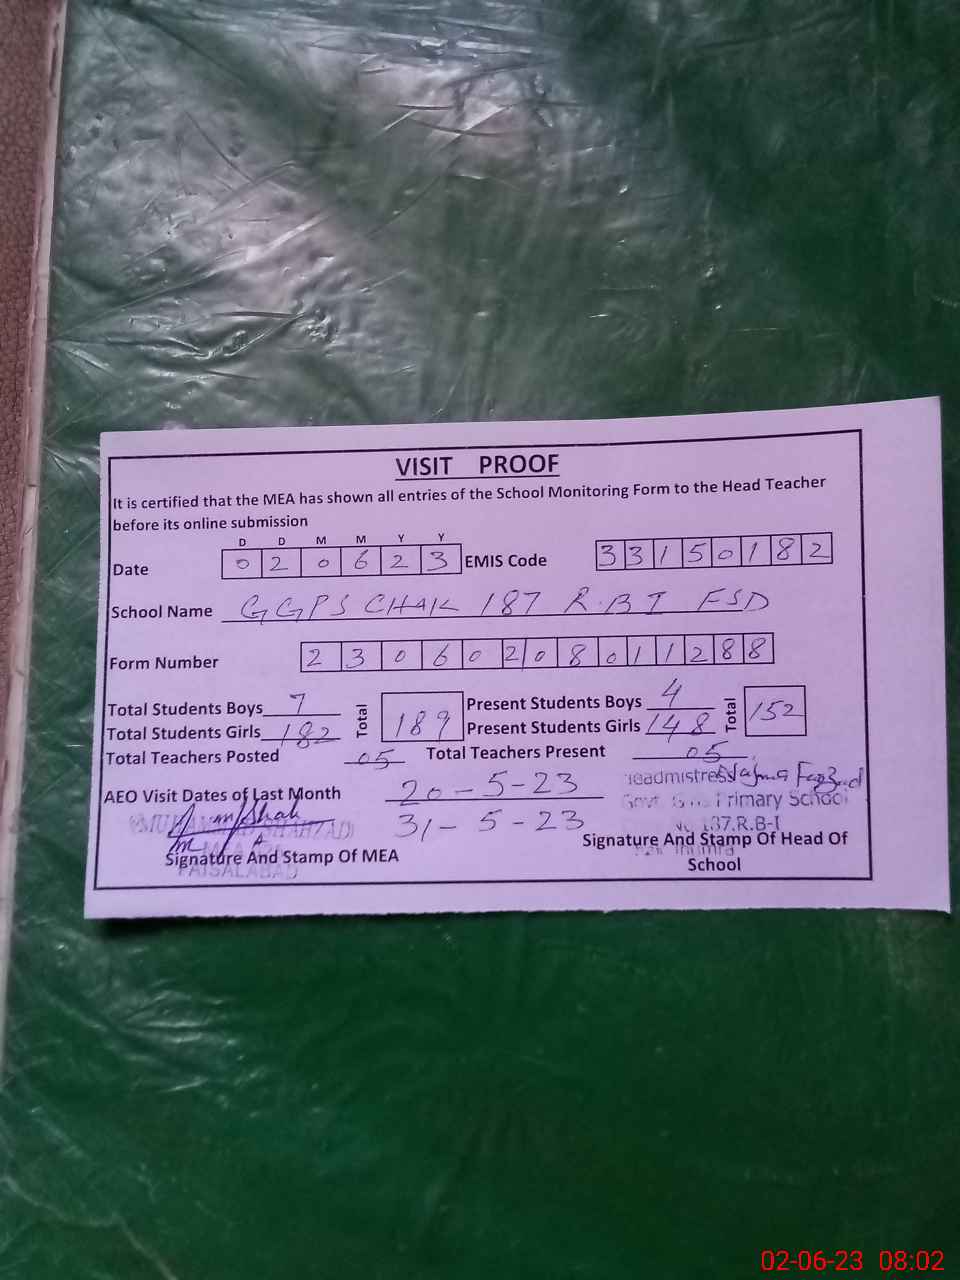 VISIT PROOF
It is certified that the MEA has shown all entries of the School Monitoring Form to the Head Teacher
before its online submission
D D M M Y Y
Date 0 2 0 6 2 3 EMIS Code 3 3 1 5 0 1 8 2
School Name GGPS CHAK 187 R.B I FSD
Form Number 2 3 0 6 0 2 0 8 0 1 1 2 8 8
Total Students Boys 7 Total 189 Present Students Boys 4 Total 152
Total Students Girls 182 Present Students Girls 148
Total Teachers Posted 05 Total Teachers Present 05
AEO Visit Dates of Last Month 20-5-23
31-5-23
Headmistress
Govt. Girls Primary School
No 187.R.B-I
MUHAMMAD SHAHZAD
MEA
FAISALABAD
Signature And Stamp Of MEA
Signature And Stamp Of Head Of
School
02-06-23 08:02